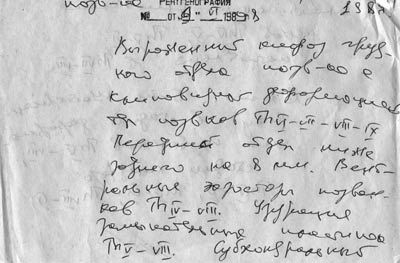 позв-ка
РЕНТГЕНОГРАФИЯ
№ от VI 198
Выраженный кифоз груд-
ного отдела позв-ка с
клиновидной деформацией
тел позвонков Th VI - VII - VIII - IX
Передний отдел ниже
заднего на 8 мм. Вент-
ральные экостозы позвон-
ков Th IV - VIII. Узурация
замыкательных пластинок
Th V - VIII. Субхондральный